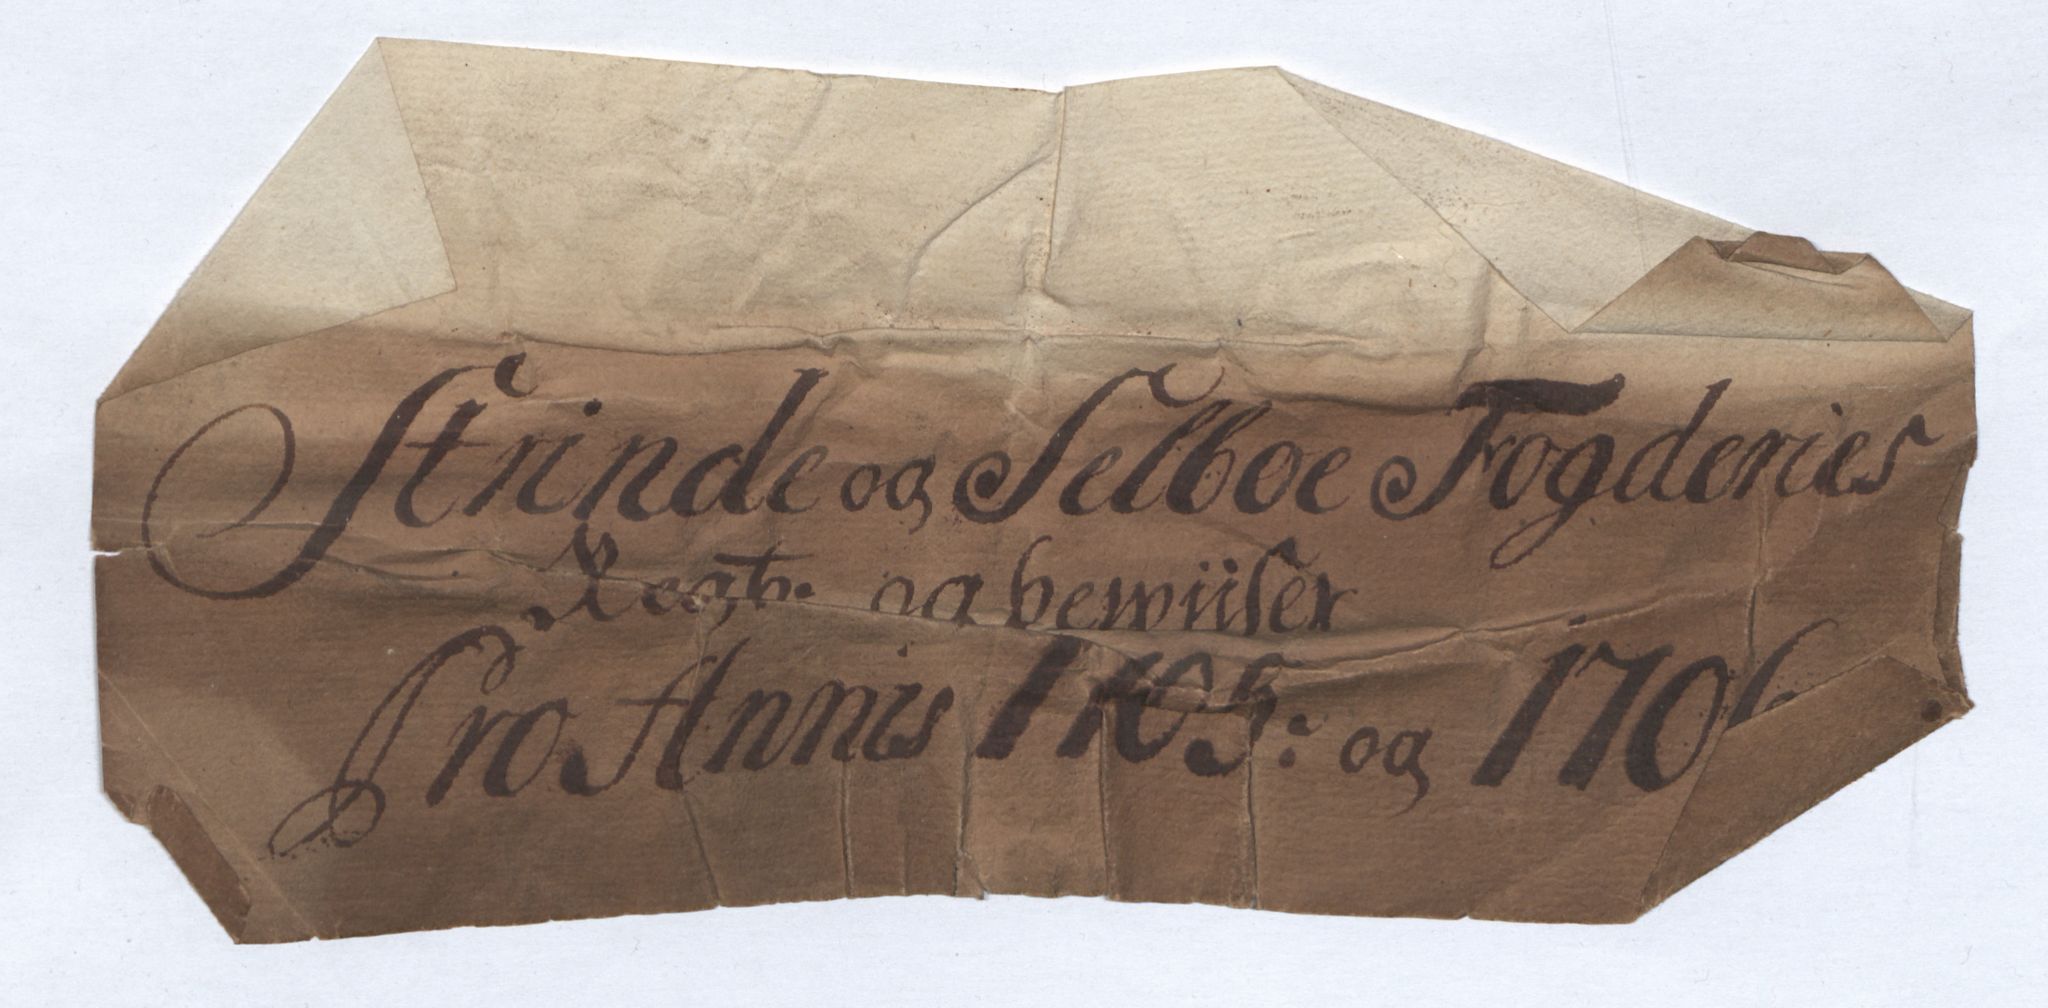 Strinde og Selboe Fogderies
Regb: og bewiiser
Pro Annis 1705: og 1706